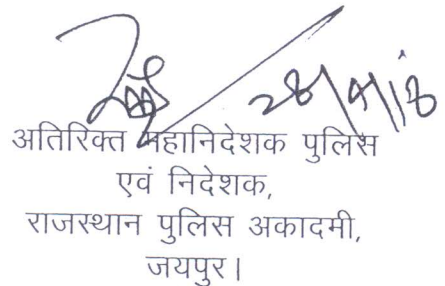 28/9/18
अतिरिक्त महानिदेशक पुलिस
एवं निदेशक,
राजस्थान पुलिस अकादमी,
जयपुर।